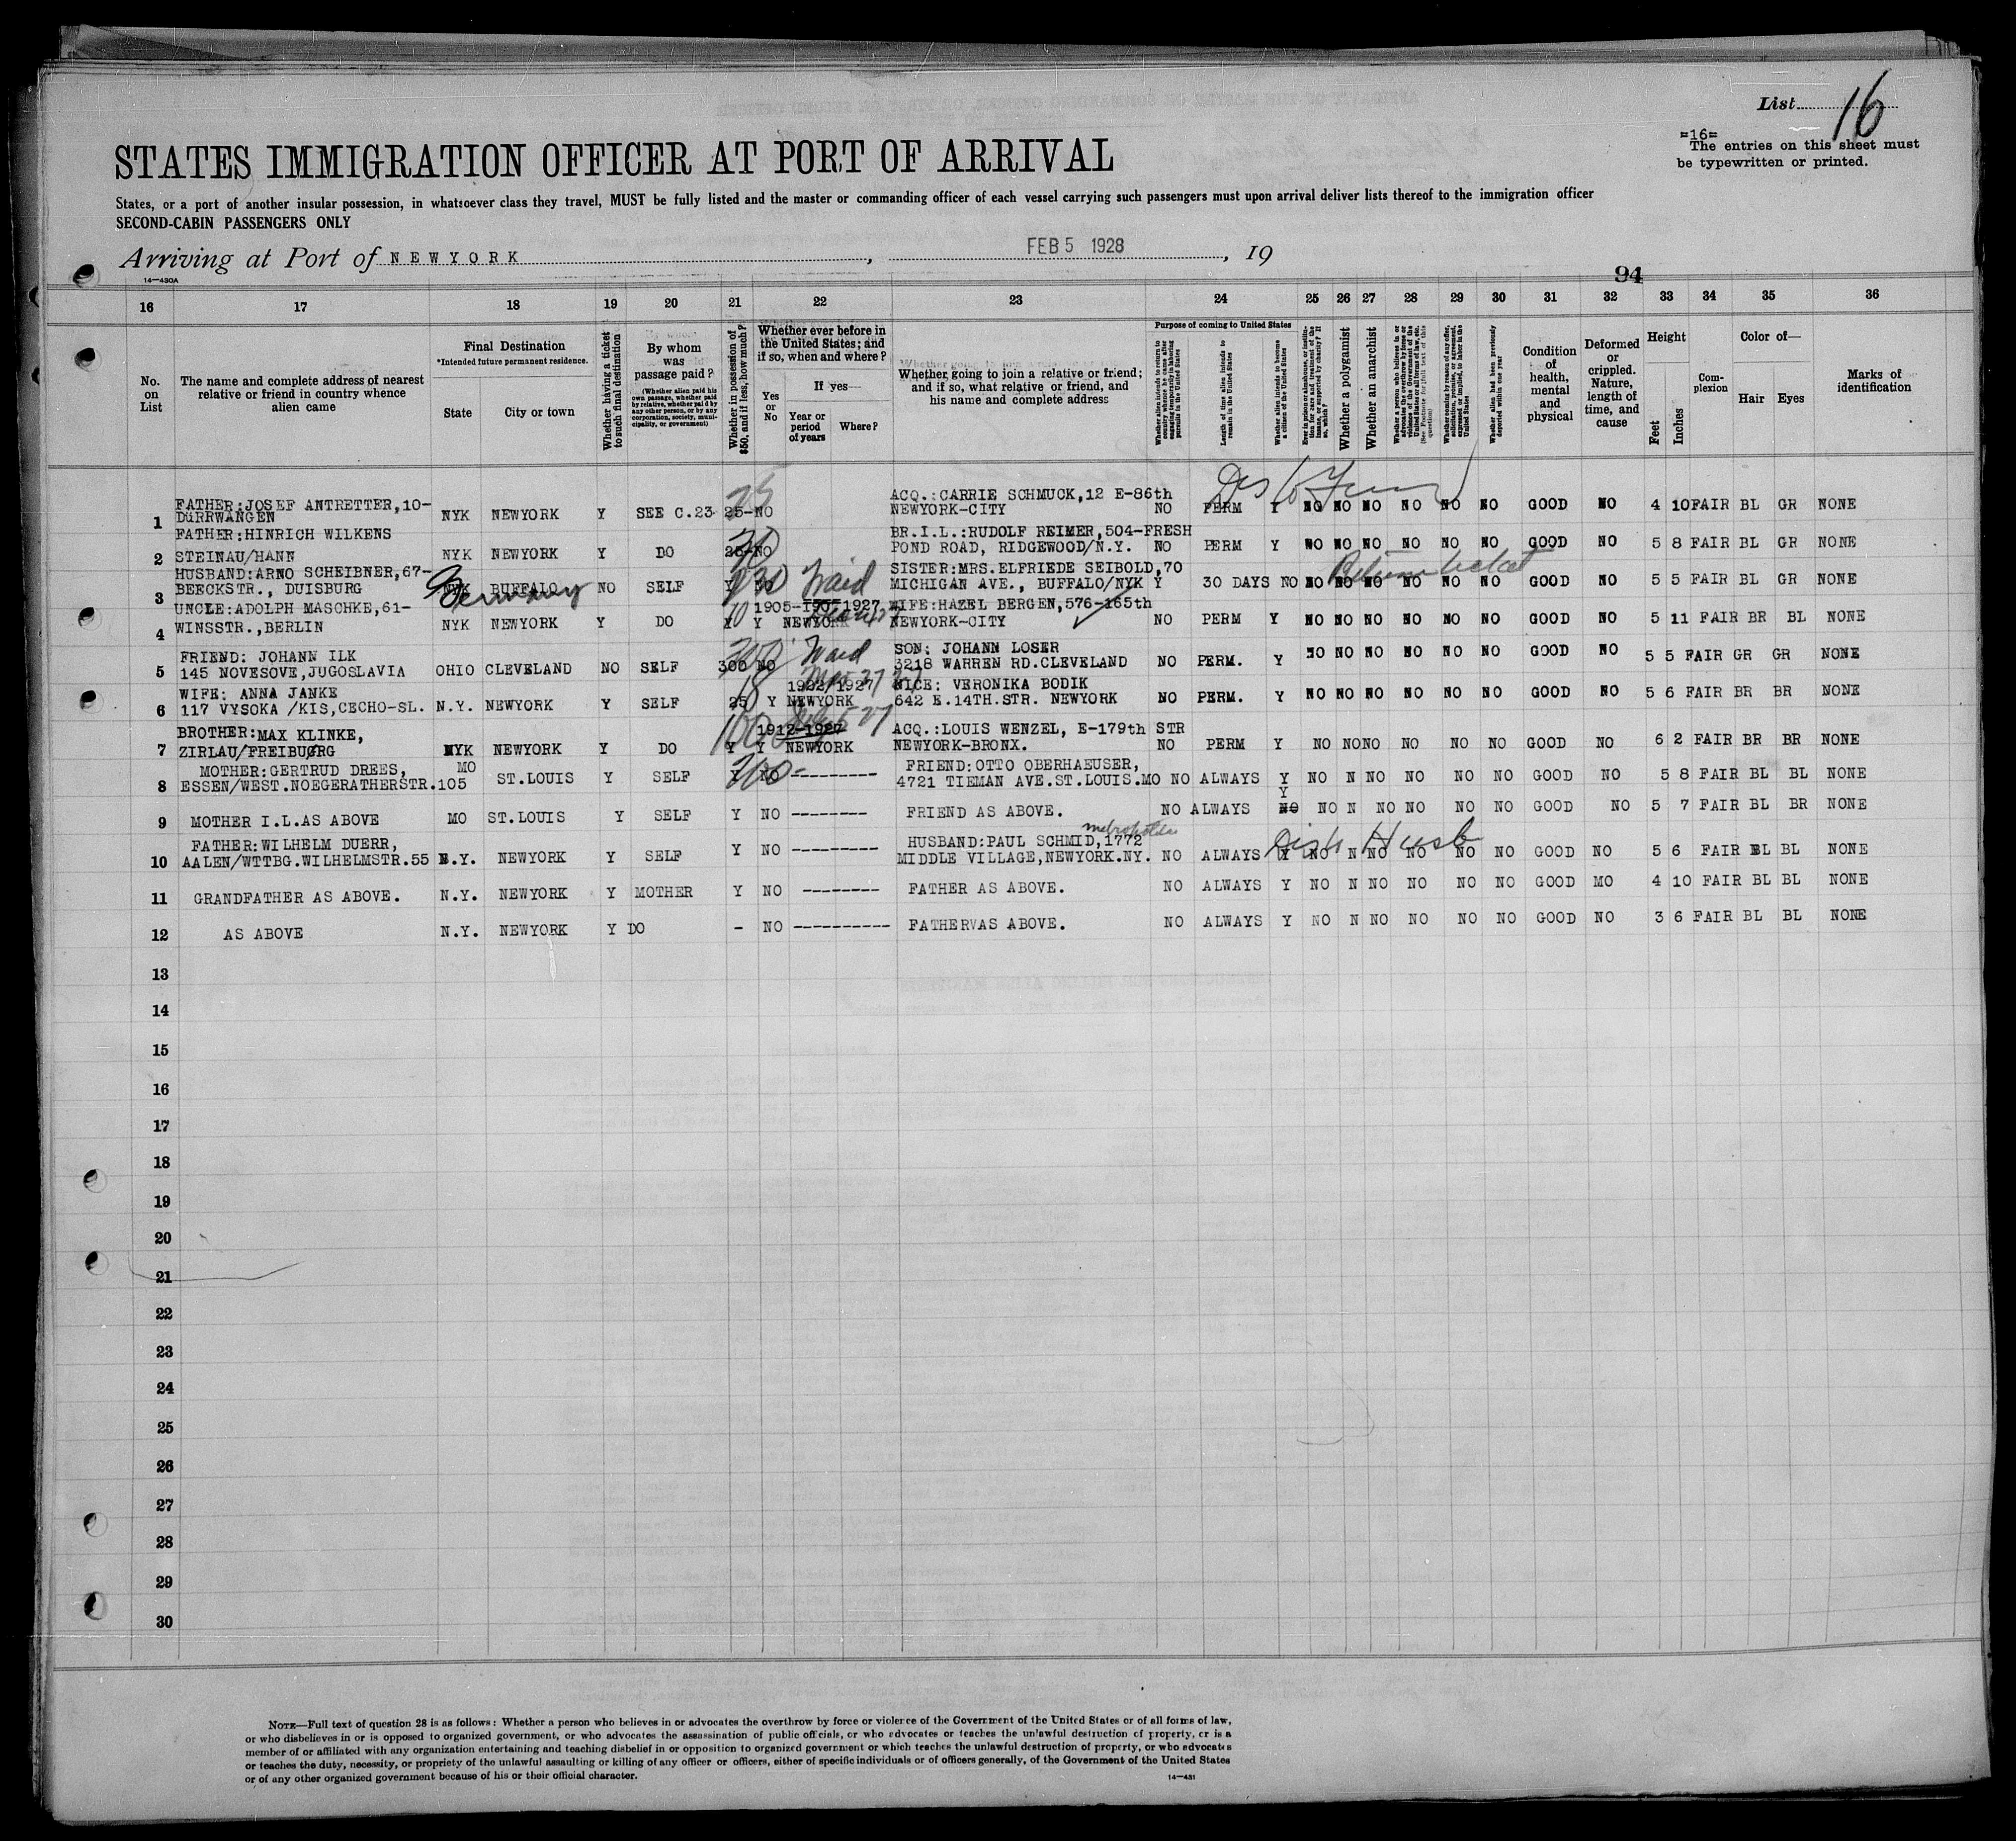 List 16
=16=
The entries on this sheet must
be typewritten or printed.
STATES IMMIGRATION OFFICER AT PORT OF ARRIVAL
States, or a port of another insular possession, in whatsoever class they travel, MUST be fully listed and the master or commanding officer of each vessel carrying such passengers must upon arrival deliver lists thereof to the immigration officer
SECOND-CABIN PASSENGERS ONLY
Arriving at Port of NEWYORK, FEB 5 1928, 19
14—430A
94
16 17 18 19 20 21 22 23 24 25 26 27 28 29 30 31 32 33 34 35 36
No. on List
The name and complete address of nearest relative or friend in country whence alien came
Final Destination
*Intended future permanent residence.
State City or town
Whether having a ticket to such final destination
By whom was passage paid?
(Whether alien paid his own passage, whether paid by relative, whether paid by any other person, or by any corporation, society, municipality, or government)
Whether in possession of $50, and if less, how much?
Whether ever before in the United States; and if so, when and where?
Yes or No
If yes—
Year or period of years
Where?
Whether going to join a relative or friend; and if so, what relative or friend, and his name and complete address
Purpose of coming to United States
Whether alien intends to return to country whence he came after engaging temporarily in laboring pursuits in the United States
Length of time alien intends to remain in the United States
Whether alien intends to become a citizen of the United States
Whether a polygamist
Whether an anarchist
Whether alien had been previously deported within one year
Condition of health, mental and physical
Deformed or crippled. Nature, length of time, and cause
Height
Feet Inches
Complexion
Color of—
Hair Eyes
Marks of identification
FATHER:JOSEF ANTRETTER,10- ACQ.:CARRIE SCHMUCK,12 E-86th
1 DüRRWANGEN NYK NEWYORK Y SEE C.23 25-NO NEWYORK-CITY NO PERM Y NO NO NO NO NO NO GOOD NO 4 10 FAIR BL GR NONE
FATHER:HINRICH WILKENS BR.I.L.:RUDOLF REIMER,504-FRESH
2 STEINAU/HANN NYK NEWYORK Y DO 25-NO POND ROAD, RIDGEWOOD/N.Y. NO PERM Y NO NO NO NO NO NO GOOD NO 5 8 FAIR BL GR NONE
HUSBAND:ARNO SCHEIBNER,67- SISTER:MRS.ELFRIEDE SEIBOLD,70
3 BEECKSTR., DUISBURG NYK BUFFALO Germany NO SELF Y NO MICHIGAN AVE., BUFFALO/NYK Y 30 DAYS NO NO NO NO NO NO NO Return ticket GOOD NO 5 5 FAIR BL GR NONE
UNCLE:ADOLPH MASCHKE,61- WIFE:HAZEL BERGEN,576-165th
4 WINSSTR.,BERLIN NYK NEWYORK Y DO 10 Y Y NEWYORK NEWYORK-CITY NO PERM Y NO NO NO NO NO NO GOOD NO 5 11 FAIR BR BL NONE
FRIEND: JOHANN ILK SON: JOHANN LOSER
5 145 NOVESOVE,JUGOSLAVIA OHIO CLEVELAND NO SELF 300 NO 3218 WARREN RD.CLEVELAND NO PERM. Y NO NO NO NO NO NO GOOD NO 5 5 FAIR GR GR NONE
WIFE: ANNA JANKE 1922/1927 NICE: VERONIKA BODIK
6 117 VYSOKA /KIS,CECHO-SL. N.Y. NEWYORK Y SELF 25 Y NEWYORK 642 E.14TH.STR. NEWYORK NO PERM. Y NO NO NO NO NO NO GOOD NO 5 6 FAIR BR BR NONE
BROTHER:MAX KLINKE, 1912-1927 ACQ.:LOUIS WENZEL, E-179th STR
7 ZIRLAU/FREIBUGRG NYK NEWYORK Y DO Y Y NEWYORK NEWYORK-BRONX. NO PERM Y NO NO NO NO NO NO GOOD NO 6 2 FAIR BR BR NONE
MOTHER:GERTRUD DREES, MO FRIEND:OTTO OBERHAEUSER,
8 ESSEN/WEST.NOEGERATHERSTR.105 ST.LOUIS Y SELF Y NO --------- 4721 TIEMAN AVE.ST.LOUIS.MO NO ALWAYS Y NO N NO NO NO NO GOOD NO 5 8 FAIR BL BL NONE
9 MOTHER I.L.AS ABOVE MO ST.LOUIS Y SELF Y NO -------- FRIEND AS ABOVE. NO ALWAYS Y NO NO N NO NO NO NO GOOD NO 5 7 FAIR BL BR NONE
FATHER:WILHELM DUERR, HUSBAND:PAUL SCHMID,1772
10 AALEN/WTTBG.WILHELMSTR.55 N.Y. NEWYORK Y SELF Y NO --------- MIDDLE VILLAGE,NEWYORK.NY. NO ALWAYS Y NO N NO NO NO NO GOOD NO 5 6 FAIR BL BL NONE
11 GRANDFATHER AS ABOVE. N.Y. NEWYORK Y MOTHER Y NO -------- FATHER AS ABOVE. NO ALWAYS Y NO N NO NO NO NO GOOD MO 4 10 FAIR BL BL NONE
12 AS ABOVE N.Y. NEWYORK Y DO - NO ---------- FATHERVAS ABOVE. NO ALWAYS Y NO N NO NO NO NO GOOD NO 3 6 FAIR BL BL NONE
13
14
15
16
17
18
19
20
21
22
23
24
25
26
27
28
29
30
NOTE—Full text of question 28 is as follows: Whether a person who believes in or advocates the overthrow by force or violence of the Government of the United States or of all forms of law,
or who disbelieves in or is opposed to organized government, or who advocates the assassination of public officials, or who advocates or teaches the unlawful destruction of property, or is a
member of or affiliated with any organization entertaining and teaching disbelief in or opposition to organized government or which teaches the unlawful destruction of property, or who advocates
or teaches the duty, necessity, or propriety of the unlawful assaulting or killing of any officer or officers, either of specific individuals or of officers generally, of the Government of the United States
or of any other organized government because of his or their official character.
14—431